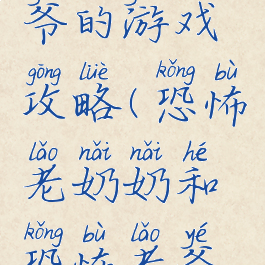 爷的游戏
gōng lüè kǒng bù
攻略(恐怖
lǎo nǎi nǎi hé
老奶奶和
kǒng bù lǎo yé
恐怖老爷